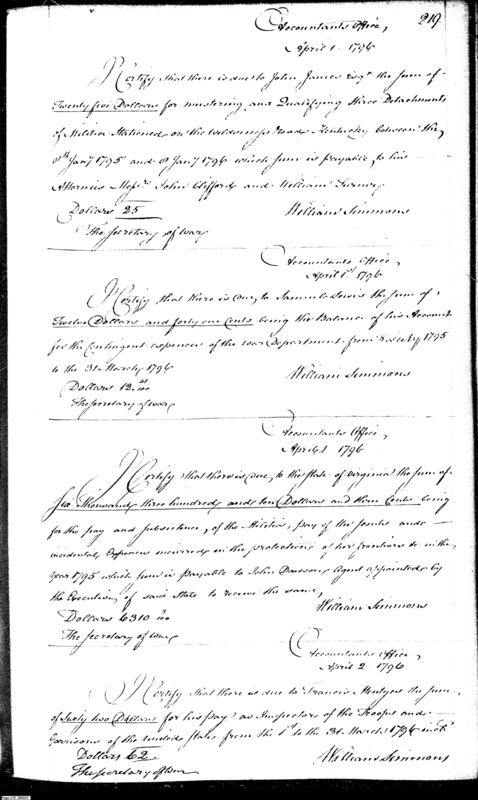 219
Accountants Office,
April 1. 1796
I Certify that there is due to John James Esqr. the sum of
Twenty five Dollars for mustering and Qualifying three Detachments
of Militia Stationed on the Wilderness road Kentucky between the
8th Jany 1795 and 8 Jany 1796 which sum is payable, to his
Attornies Messrs. John Clifford and William Turner,
Dollars 25
William Simmons
The Secretary of War
Accountants Office,
April 1st 1796
I Certify that there is due, to Samuel Lewis the sum of
Twelve Dollars and forty one Cents being the Balance of his Account
for the Contingent expences of the War Department from July 1795
to the 31 March 1796
William Simmons
Dollars 12 41/100
The Secretary of War
Accountants Office,
April 1 1796
I Certify that there is due, to the State of Virginia the sum of
Six Thousand three hundred and ten Dollars and three Cents being
for the pay and subsistence, of the Militia, pay of the Scouts and
incidental Expences incurred in the protection of her frontiers in the
Year 1795 which sum is payable to John Dawson, Agent appointed by
the Executive, of said State to receive the same,
William Simmons
Dollars 6310 3/100
The Secretary of War
Accountants Office,
April 2 1796
I Certify that there is due to Francis Mentges the sum,
of Sixty two Dollars for his pay as Inspector of the Troops and
Garrisons of the United States from the 1st to the 31 March 1796 inclu.
Dollars 62
William Simmons
The Secretary of War